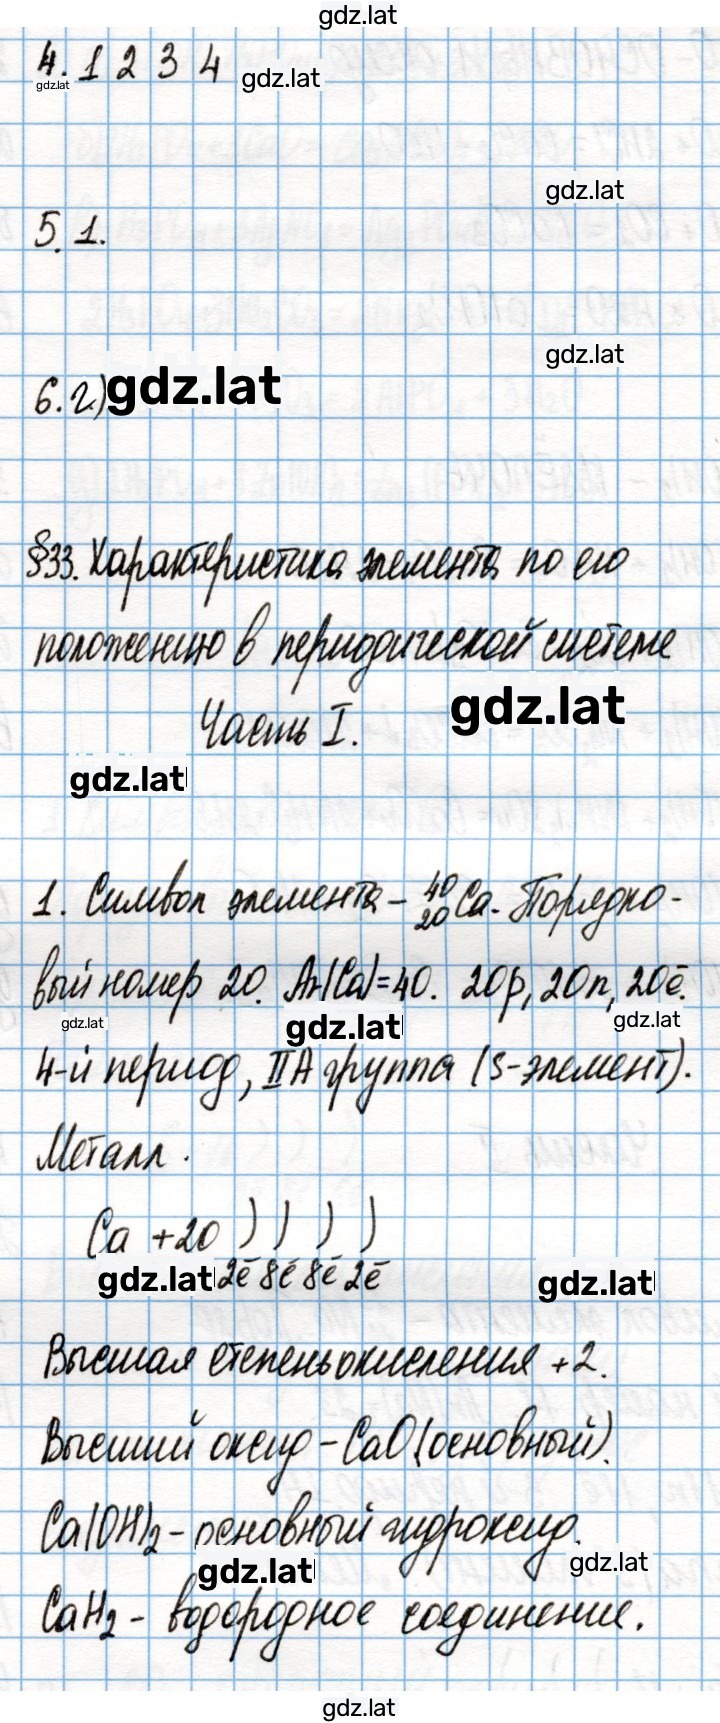 gdz.lat
4. 1 2 3 4 gdz.lat
gdz.lat
gdz.lat
5. 1.
gdz.lat
6. г) gdz.lat
§33. Характеристика элемента по его
положению в периодической системе
Часть I. gdz.lat
gdz.lat
1. Символ элемента – ⁴⁰₂₀Ca. Порядко-
вый номер 20. Ar(Ca)=40. 20p, 20n, 20ē.
gdz.lat gdz.lat gdz.lat
4-й период, IIA группа (s-элемент).
Металл.
Ca +20 ) ) ) )
gdz.lat 2ē 8ē 8ē 2ē gdz.lat
Высшая степень окисления +2.
Высший оксид – CaO (основный).
Ca(OH)₂ – основный гидроксид.
gdz.lat gdz.lat
CaH₂ – водородное соединение.
gdz.lat